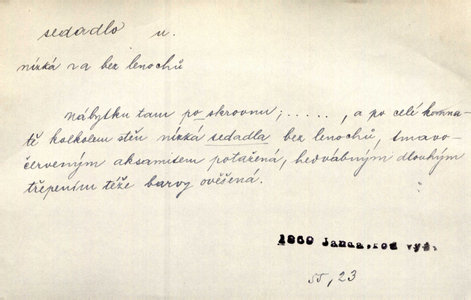 sedadlo n.
nízká na bez lenochů
Nábytku tam po skrovnu; ....., a po celé komna-
tě kolkolem stěn nízká sedadla bez lenochů, tmavo-
červeným aksamitem potažená, hedvábným dlouhým
třepením téže barvy ověšená.
1869 Janda, Pod vyš.
55, 23